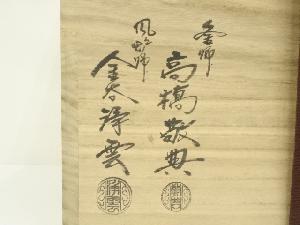 釜師
高橋敬典
風炉師
金谷浄雲